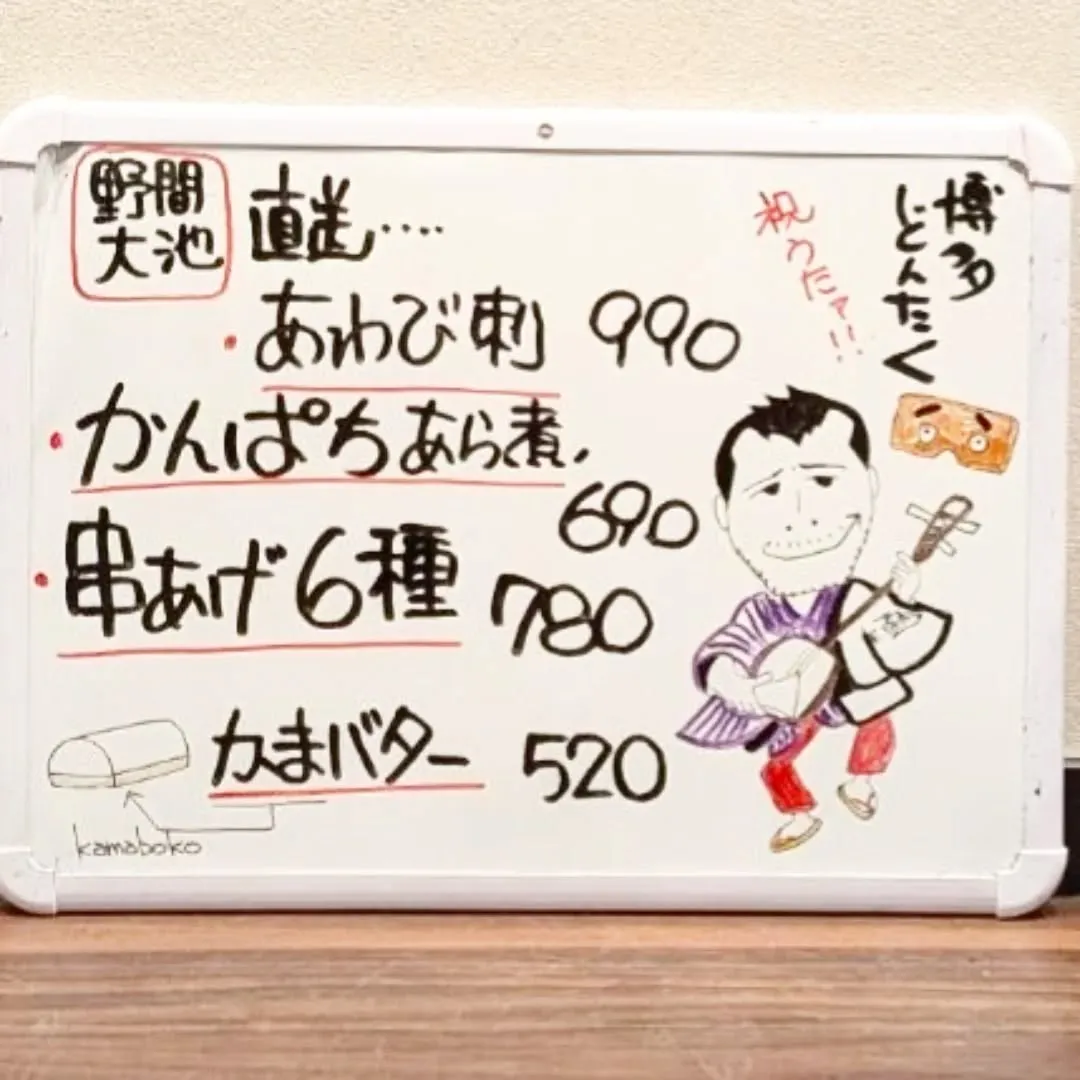 野間
大池
直送‥‥
・あわび刺 990
・かんぱちあら煮
690
・串あげ6種 780
かまバター 520
kamaboko
博多
どんたく
祝うたァ!!